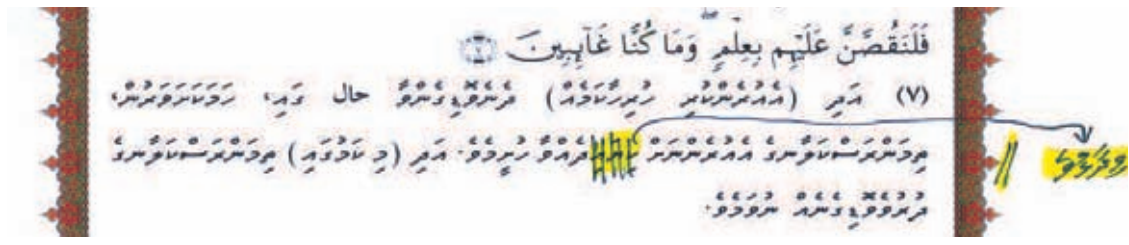 فَلَنَقُصَّنَّ عَلَيْهِم بِعِلْمٍ ۖ وَمَا كُنَّا غَآئِبِينَ ﴿٧﴾
(٧) އަދި (އެއުރެންކުރި ހުރިހާކަމެއް) ދެނެވޮޑިގެންވާ حال ގައި، ހަމަކަށަވަރުން،
ތިމަންރަސްކަލާނގެ އެއުރެންނަށް ދެއްވާ ހުށީމެވެ. އަދި (މި ކަމުގައި) ތިމަންރަސްކަލާނގެ
ދުރުވެވޮޑިގެނެއް ނުވަމެވެ.